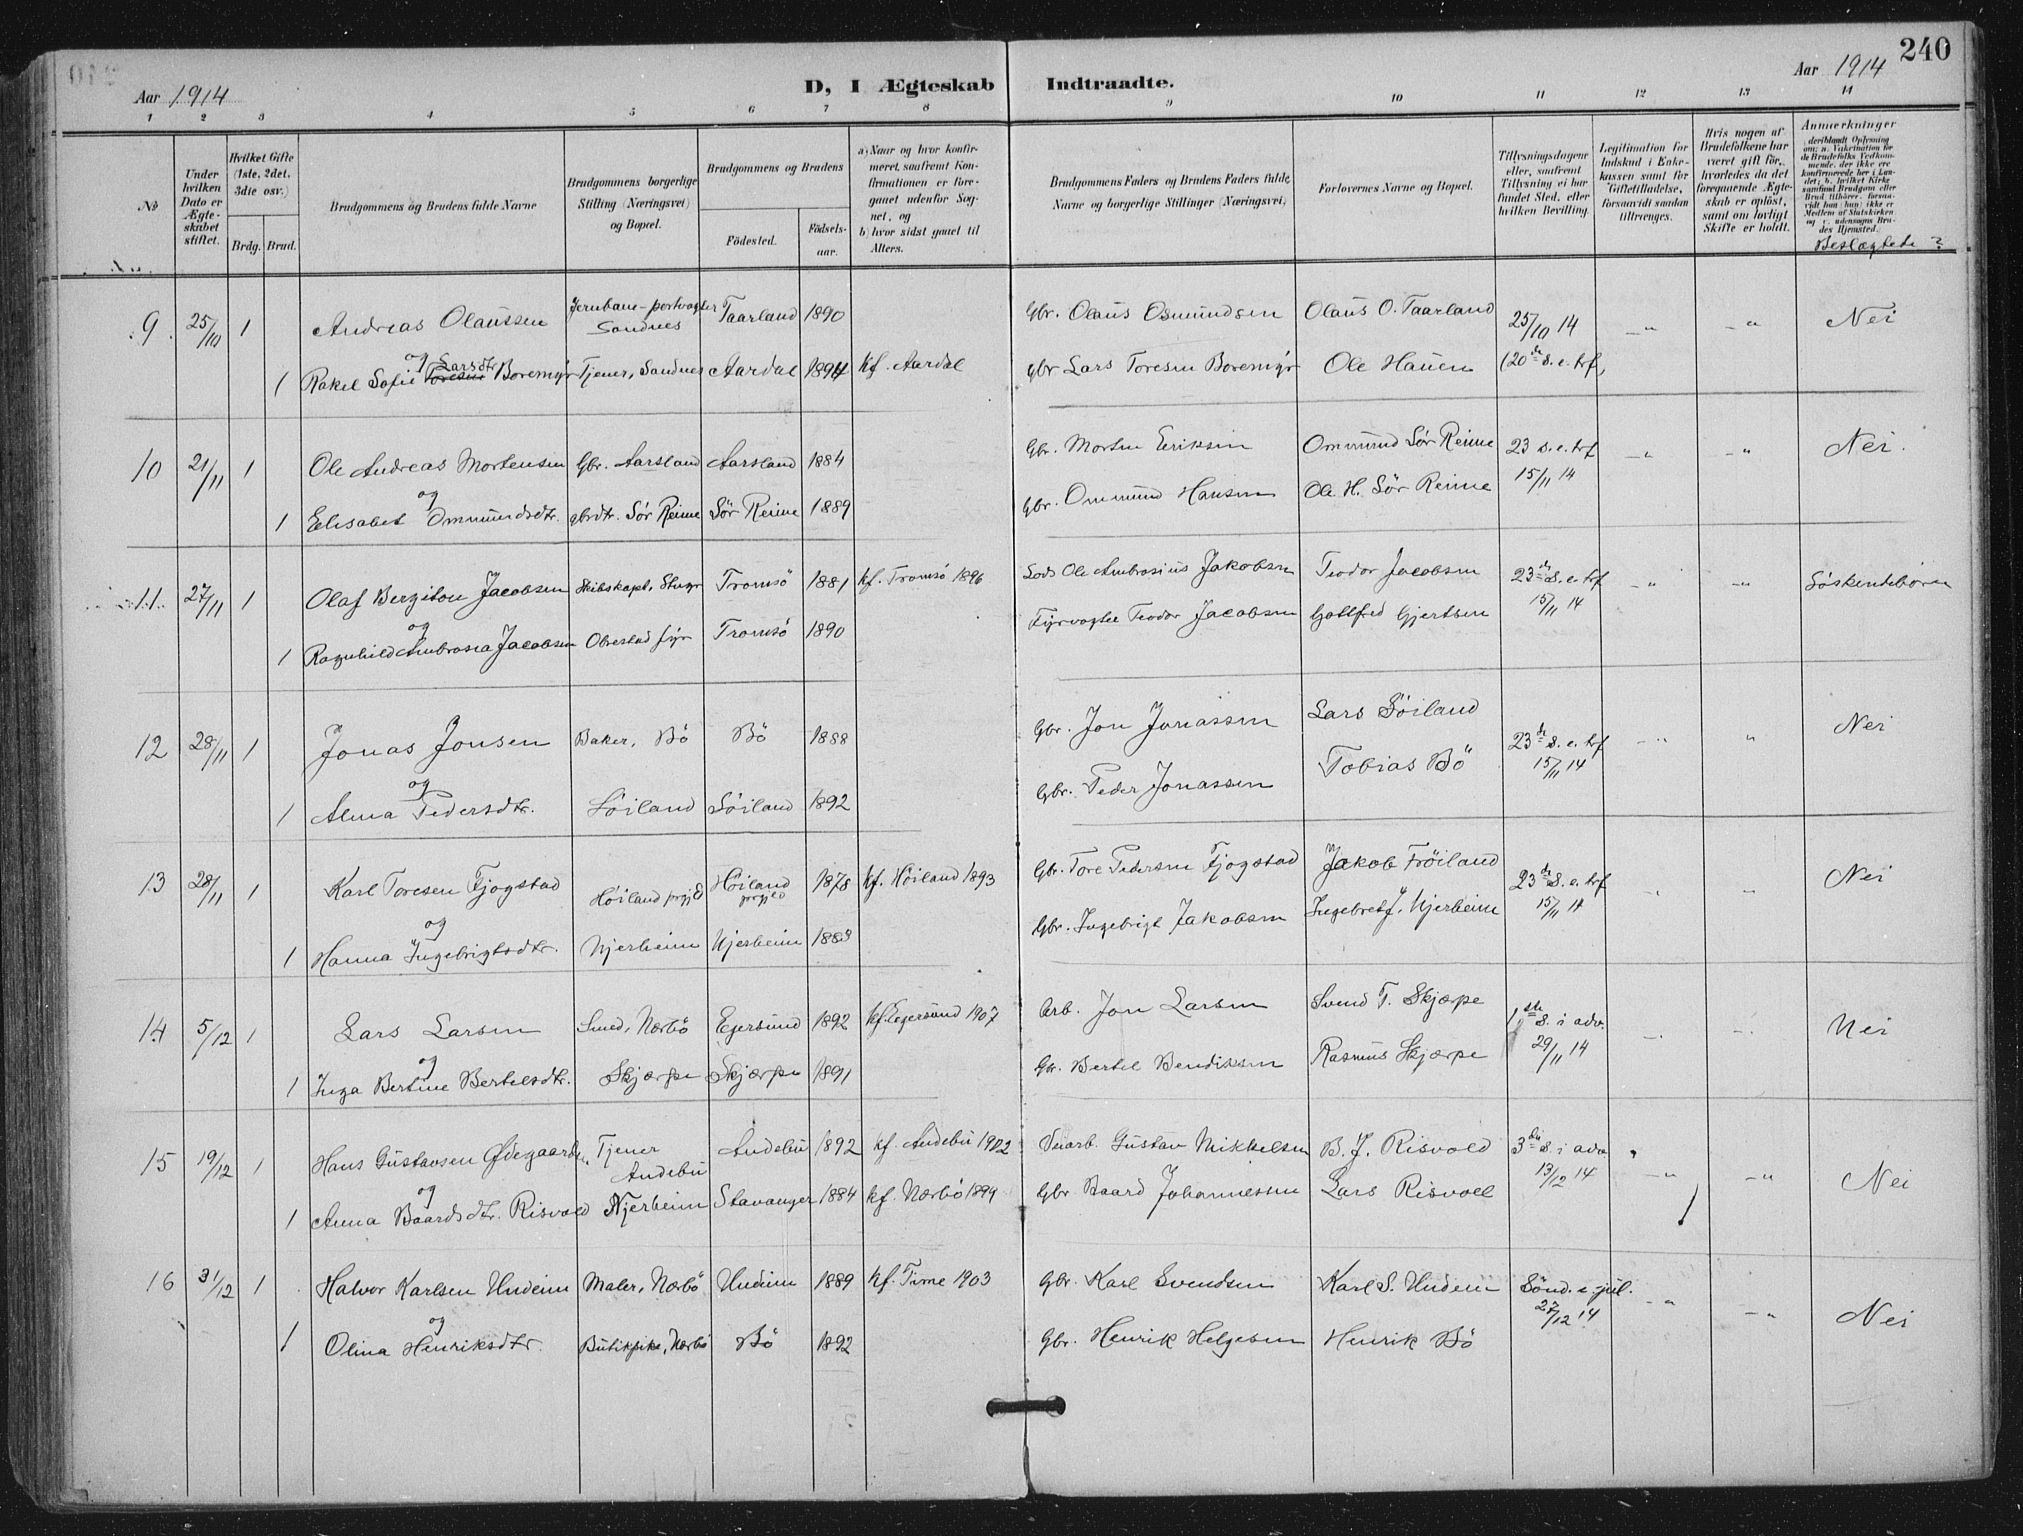 240
Aar 1914
D, I Ægteskab Indtraadte.
Aar 1914
1 2 3 4 5 6 7 8 9 10 11 12 13 14
No
Under hvilken Dato er Ægteskabet stiftet.
Hvilket Gifte (1ste, 2det, 3die osv.)
Brdg. Brud.
Brudgommens og Brudens fulde Navne
Brudgommens borgerlige Stilling (Næringsvei) og Bopæl.
Brudgommens og Brudens
Födested.
Födselsaar.
a) Naar og hvor konfirmeret, saafremt Konfirmationen er foregaaet udenfor Sognet, og
b) hvor sidst gaaet til Alters.
Brudgommens Faders og Brudens Faders fulde Navne og borgerlige Stillinger (Næringsvei)
Forlovernes Navne og Bopæl.
Tillysningsdagene eller, saafremt Tillysning ei har fundet Sted, efter hvilken Bevilling.
Legitimation for Indskud i Enkekassen samt for Giftetilladelse, forsaavidt saadan tiltrænges.
Hvis nogen af Brudefolkene har været gift för, hvorledes da det foregaaende Ægteskab er oplöst, samt om lovligt Skifte er holdt.
Anmærkninger
Beslægtede?
9 25/10 1 Andreas Olaussen Jernbane-portvogter Sandnes Taarland 1890 Gbr. Olaus Osmundsen Olaus O. Taarland 25/10 14 -"- -"- Nei
og
1 Rakel Sofie Larsdtr. Boremyr Tjener, Sandnes Aardal 1894 kf. Aardal gbr Lars Toresen Boremyr Ole Hauen (20de s. e. trf)
10 21/11 1 Ole Andreas Mortensen Gbr. Aarsland Aarsland 1884 Gbr. Morten Eriksen Ommund Sör Reime 23 s. e. trf -"- -"- Nei.
og
1 Elisabet Ommundsdtr. gbrdtr. Sör Reime Sör Reime 1889 Gbr. Ommund Hansen Ole H. Sör Reime 15/11 14
11. 27/11 1 Olaf Bergiton Jacobsen Skibskapt. Tromsö 1881 kf. Tromsö 1896 Lods Ole Ambrosius Jakobsen Teodor Jacobsen 23de s. e. trf -"- -"- Söskendebörn
og
1 Ragnhild Ambrosia Jacobsen Obrestad fyr Tromsö 1890 Fyrvogter Teodor Jacobsen Gottfred Gjertsen 15/11 14
12 28/11 1 Jonas Jonsen Baker, Bö Bö 1888 Gbr. Jon Jonassen Lars Söiland 23de s. e. trf -"- " Nei
og
1 Alma Pedersdtr. Söiland Söiland 1892 Gbr. Peder Jonassen Tobias Bö 15/11 14
13 28/11 1 Karl Toresen Fjogstad Höiland prgjeld Höiland prgjeld 1878 kf. Höiland 1893 Gbr. Tore Pedersen Fjogstad Jakob Fröiland 23de s. e. trf " " Nei
og
1 Hanna Ingebrigtsdtr. Njerheim Njerheim 1883 Gbr. Ingebrigt Jakobsen Ingebret J. Njerheim 15/11 14
14 5/12 1 Lars Larsen Smed, Nærbö Egersund 1892 kf. Egersund 1907 Arb. Jon Larsen Svend T. Skjærpe 1ste s. i adv. Nei
og
1 Inga Bertine Bertelsdtr. Skjærpe Skjærpe 1891 Gbr. Bertel Bendiksen Rasmus Skjærpe 29/11 14
15 19/12 1 Hans Gustavsen Ødegaarden, Tjener Andebu Andebu 1892 kf. Andebu 1902 Gustav Mikkelsen B. J. Risvold 3die s. i adv. -"- -"- Nei
og
1 Anna Baardsdtr. Risvold Njerheim Stavanger 1884 kf. Nærbö 1899 Gbr. Baard Johannessen Lars Risvold 13/12 14
16 31/12 1 Halvor Karlsen Undeim Maler, Nærbö Undeim 1889 kf. Time 1903 Gbr. Karl Svendsen Karl S. Undeim Sönd. e. jul. -"- -"- Nei
og
1 Olina Henriksdtr. Butikpike, Nærbö Bö 1892 Gbr. Henrik Helgesen Henrik Bö 27/12 14